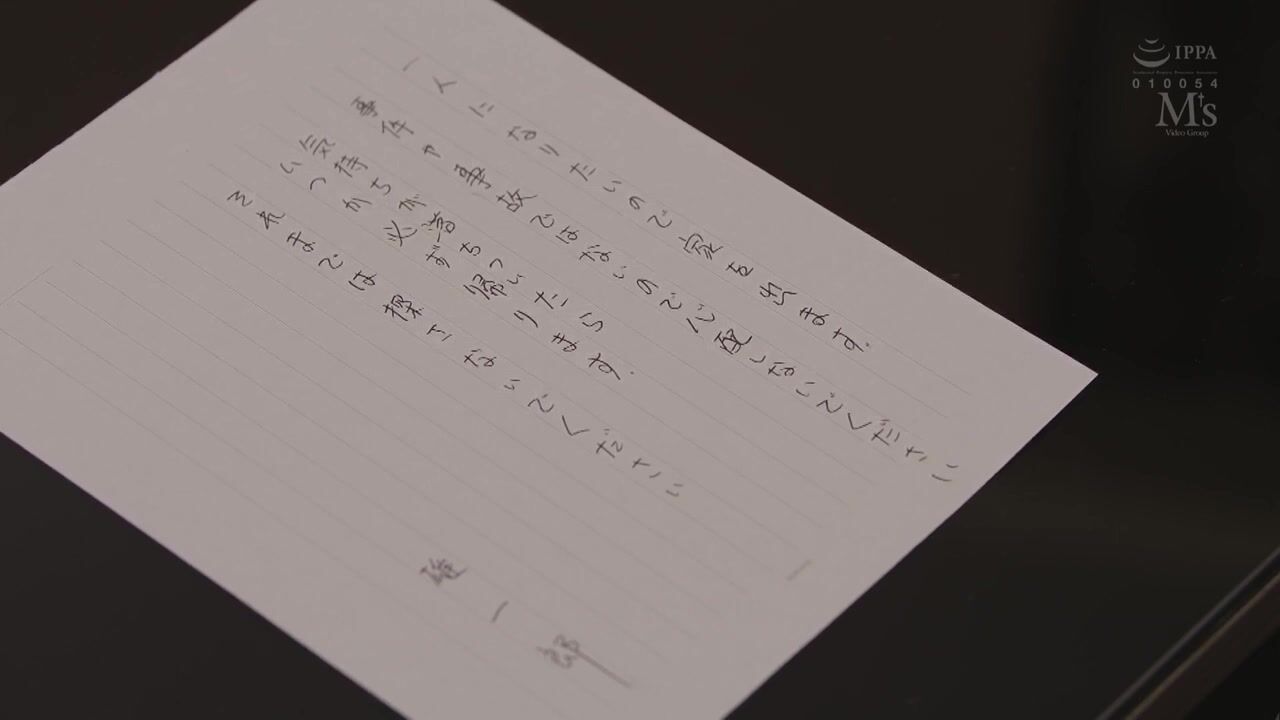 一人になりたいので家を出ます。
事件や事故ではないので心配しないでください
気持ちが落ちついたら
いつか必ず帰ります。
それまでは探さないでください
一郎
IPPA
010054
M's
Video Group